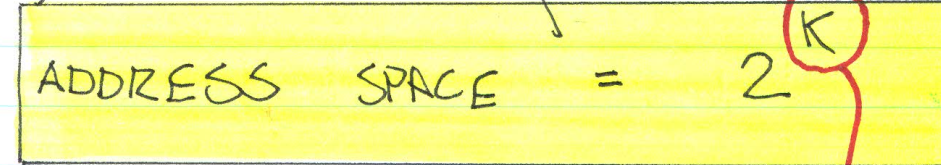 ADDRESS SPACE = 2^K